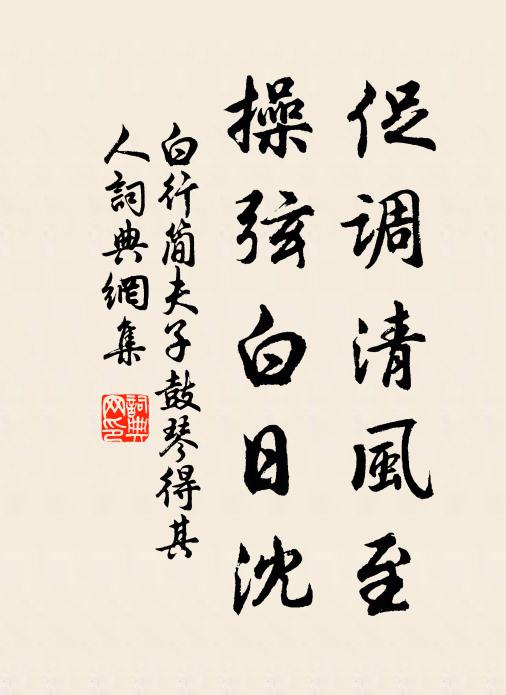 促调清風至
操弦白日沈
白行简夫子鼓琴得其
人詞典網集
詞典
网印